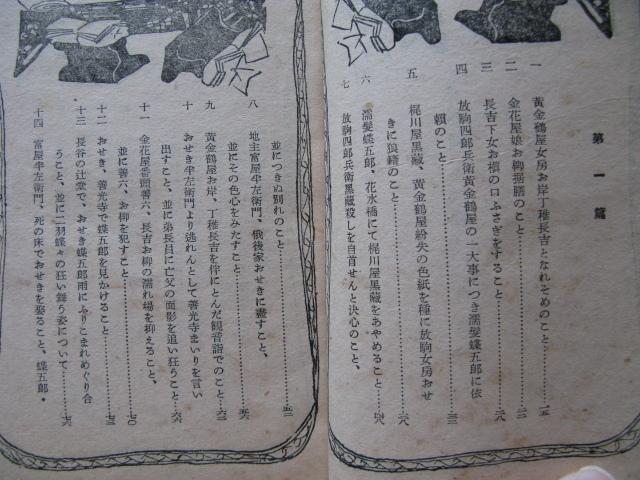 第一篇
一 黄金鶴屋女房お岸丁稚長吉となれそめのこと…………一五
二 金花屋娘お柳据膳のこと…………二三
三 長吉下女お槇の口ふさぎをすること…………二八
四 放駒四郎兵衛黄金鶴屋の一大事につき濡髪蝶五郎に依
頼のこと…………三三
五 梶川屋黒藏、黄金鶴屋紛失の色紙を種に放駒女房おせ
きに狼籍のこと…………三八
六 濡髪蝶五郎、花水橋にて梶川屋黒藏をあやめること…………四八
七 放駒四郎兵衛黒藏殺しを自首せんと決心のこと、
並につきぬ別れのこと…………五二
八 地主富屋半左衛門、俄後家おせきに盡すこと、
並にその色心をみたすこと…………五六
九 黄金鶴屋お岸、丁稚長吉を伴にとんだ観音詣でのこと…………六二
十 おせき半左衛門より逃れんとして善光寺まいりを言い
出すこと、並に弟長員に亡父の面影を追い狂うこと…………六六
十一 金花屋番頭善六、長吉お柳の濡れ場を抑えること、
並に善六、お柳を犯すこと…………七〇
十二 おせき、善光寺で蝶五郎を見かけること…………七三
十三 長谷の辻堂で、おせき蝶五郎雨にふりこまれめぐり合
うこと、並に二羽蝶々の狂い舞う姿について…………七六
十四 富屋半左衛門、死の床でおせきを娶ること、蝶五郎・